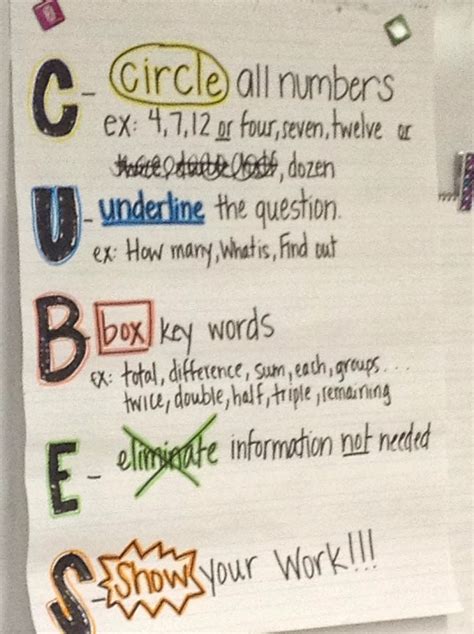 C - circle all numbers
ex: 4,7,12 or four, seven, twelve or
, dozen
U - underline the question.
ex: How many, What is, Find out
B - box key words
ex: total, difference, sum, each, groups...
twice, double, half, triple, remaining
E - eliminate information not needed
S - Show your Work!!!